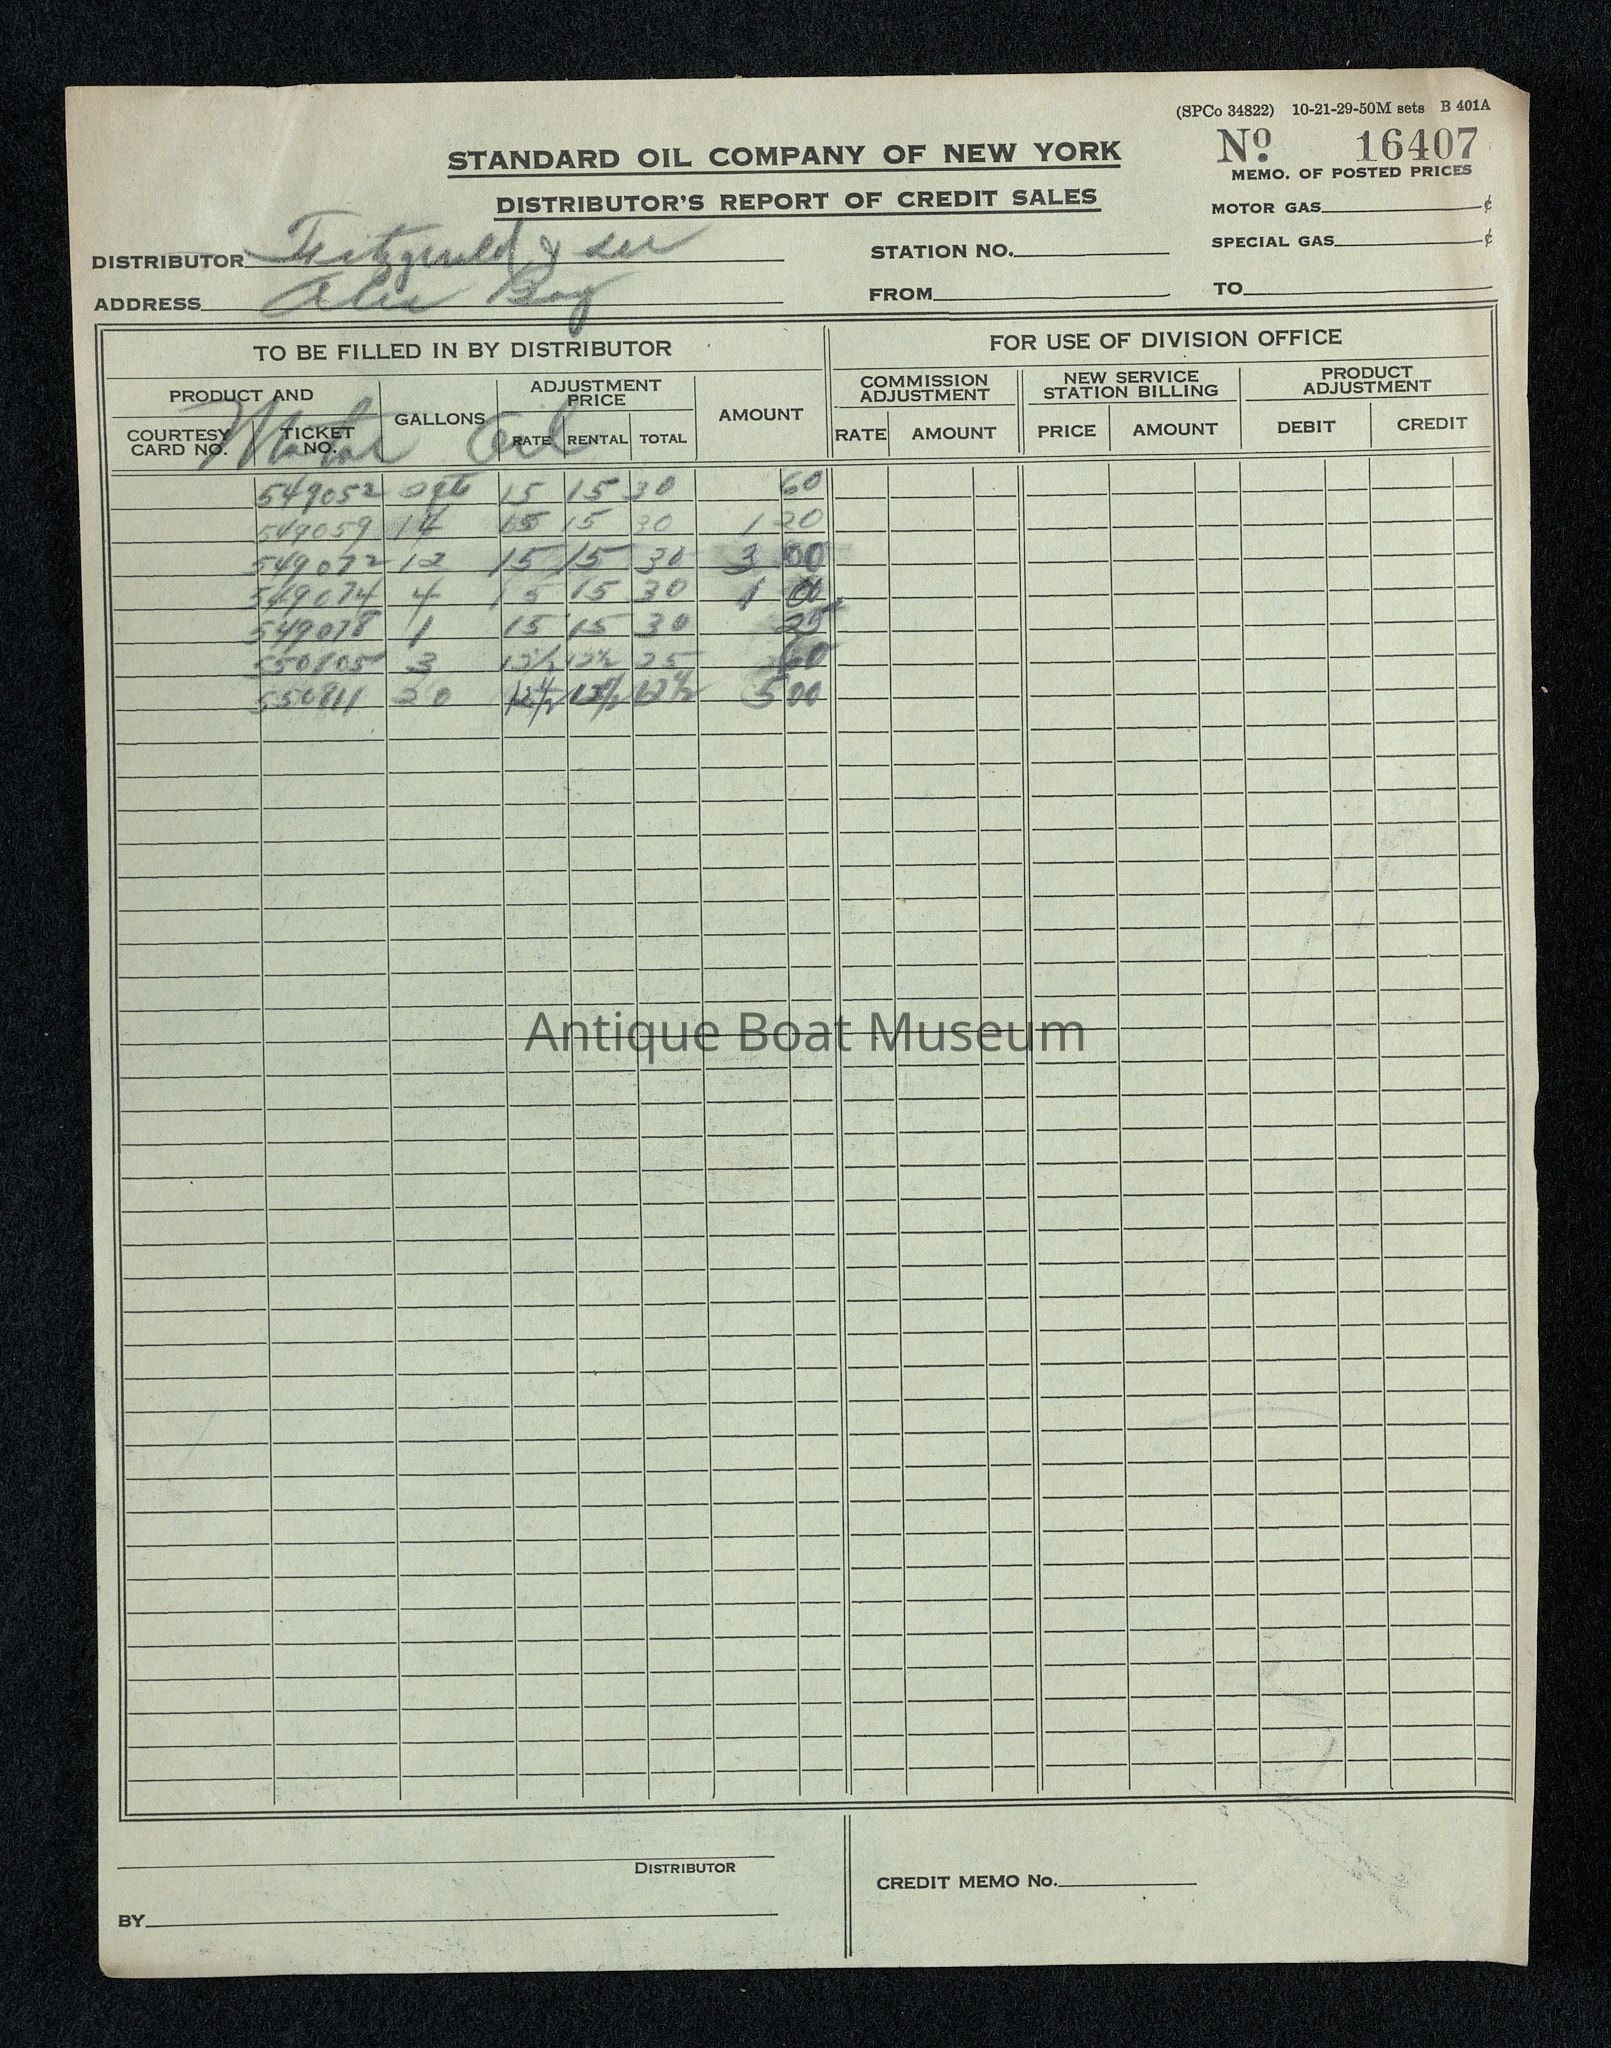 (SPCo 34822) 10-21-29-50M sets B 401A
No. 16407
STANDARD OIL COMPANY OF NEW YORK
MEMO. OF POSTED PRICES
DISTRIBUTOR'S REPORT OF CREDIT SALES
MOTOR GAS ¢
DISTRIBUTOR Fitzgerald &
STATION NO.
SPECIAL GAS ¢
ADDRESS Alex Bay
FROM TO
TO BE FILLED IN BY DISTRIBUTOR
FOR USE OF DIVISION OFFICE
PRODUCT AND
COURTESY CARD NO.
TICKET NO.
GALLONS
ADJUSTMENT PRICE
RATE RENTAL TOTAL
AMOUNT
COMMISSION ADJUSTMENT
RATE AMOUNT
NEW SERVICE STATION BILLING
PRICE AMOUNT
PRODUCT ADJUSTMENT
DEBIT CREDIT
Motor Oil
549052 15 15 30 60
549059 14 15 15 30 1 20
549072 12 15 15 30 3 00
549074 4 15 15 30 1 00
549078 1 15 15 30 25
550805 3 12½ 12½ 25 60
550811 20 12½ 12½ 12½ 5 00
Antique Boat Museum
DISTRIBUTOR
CREDIT MEMO No.
BY